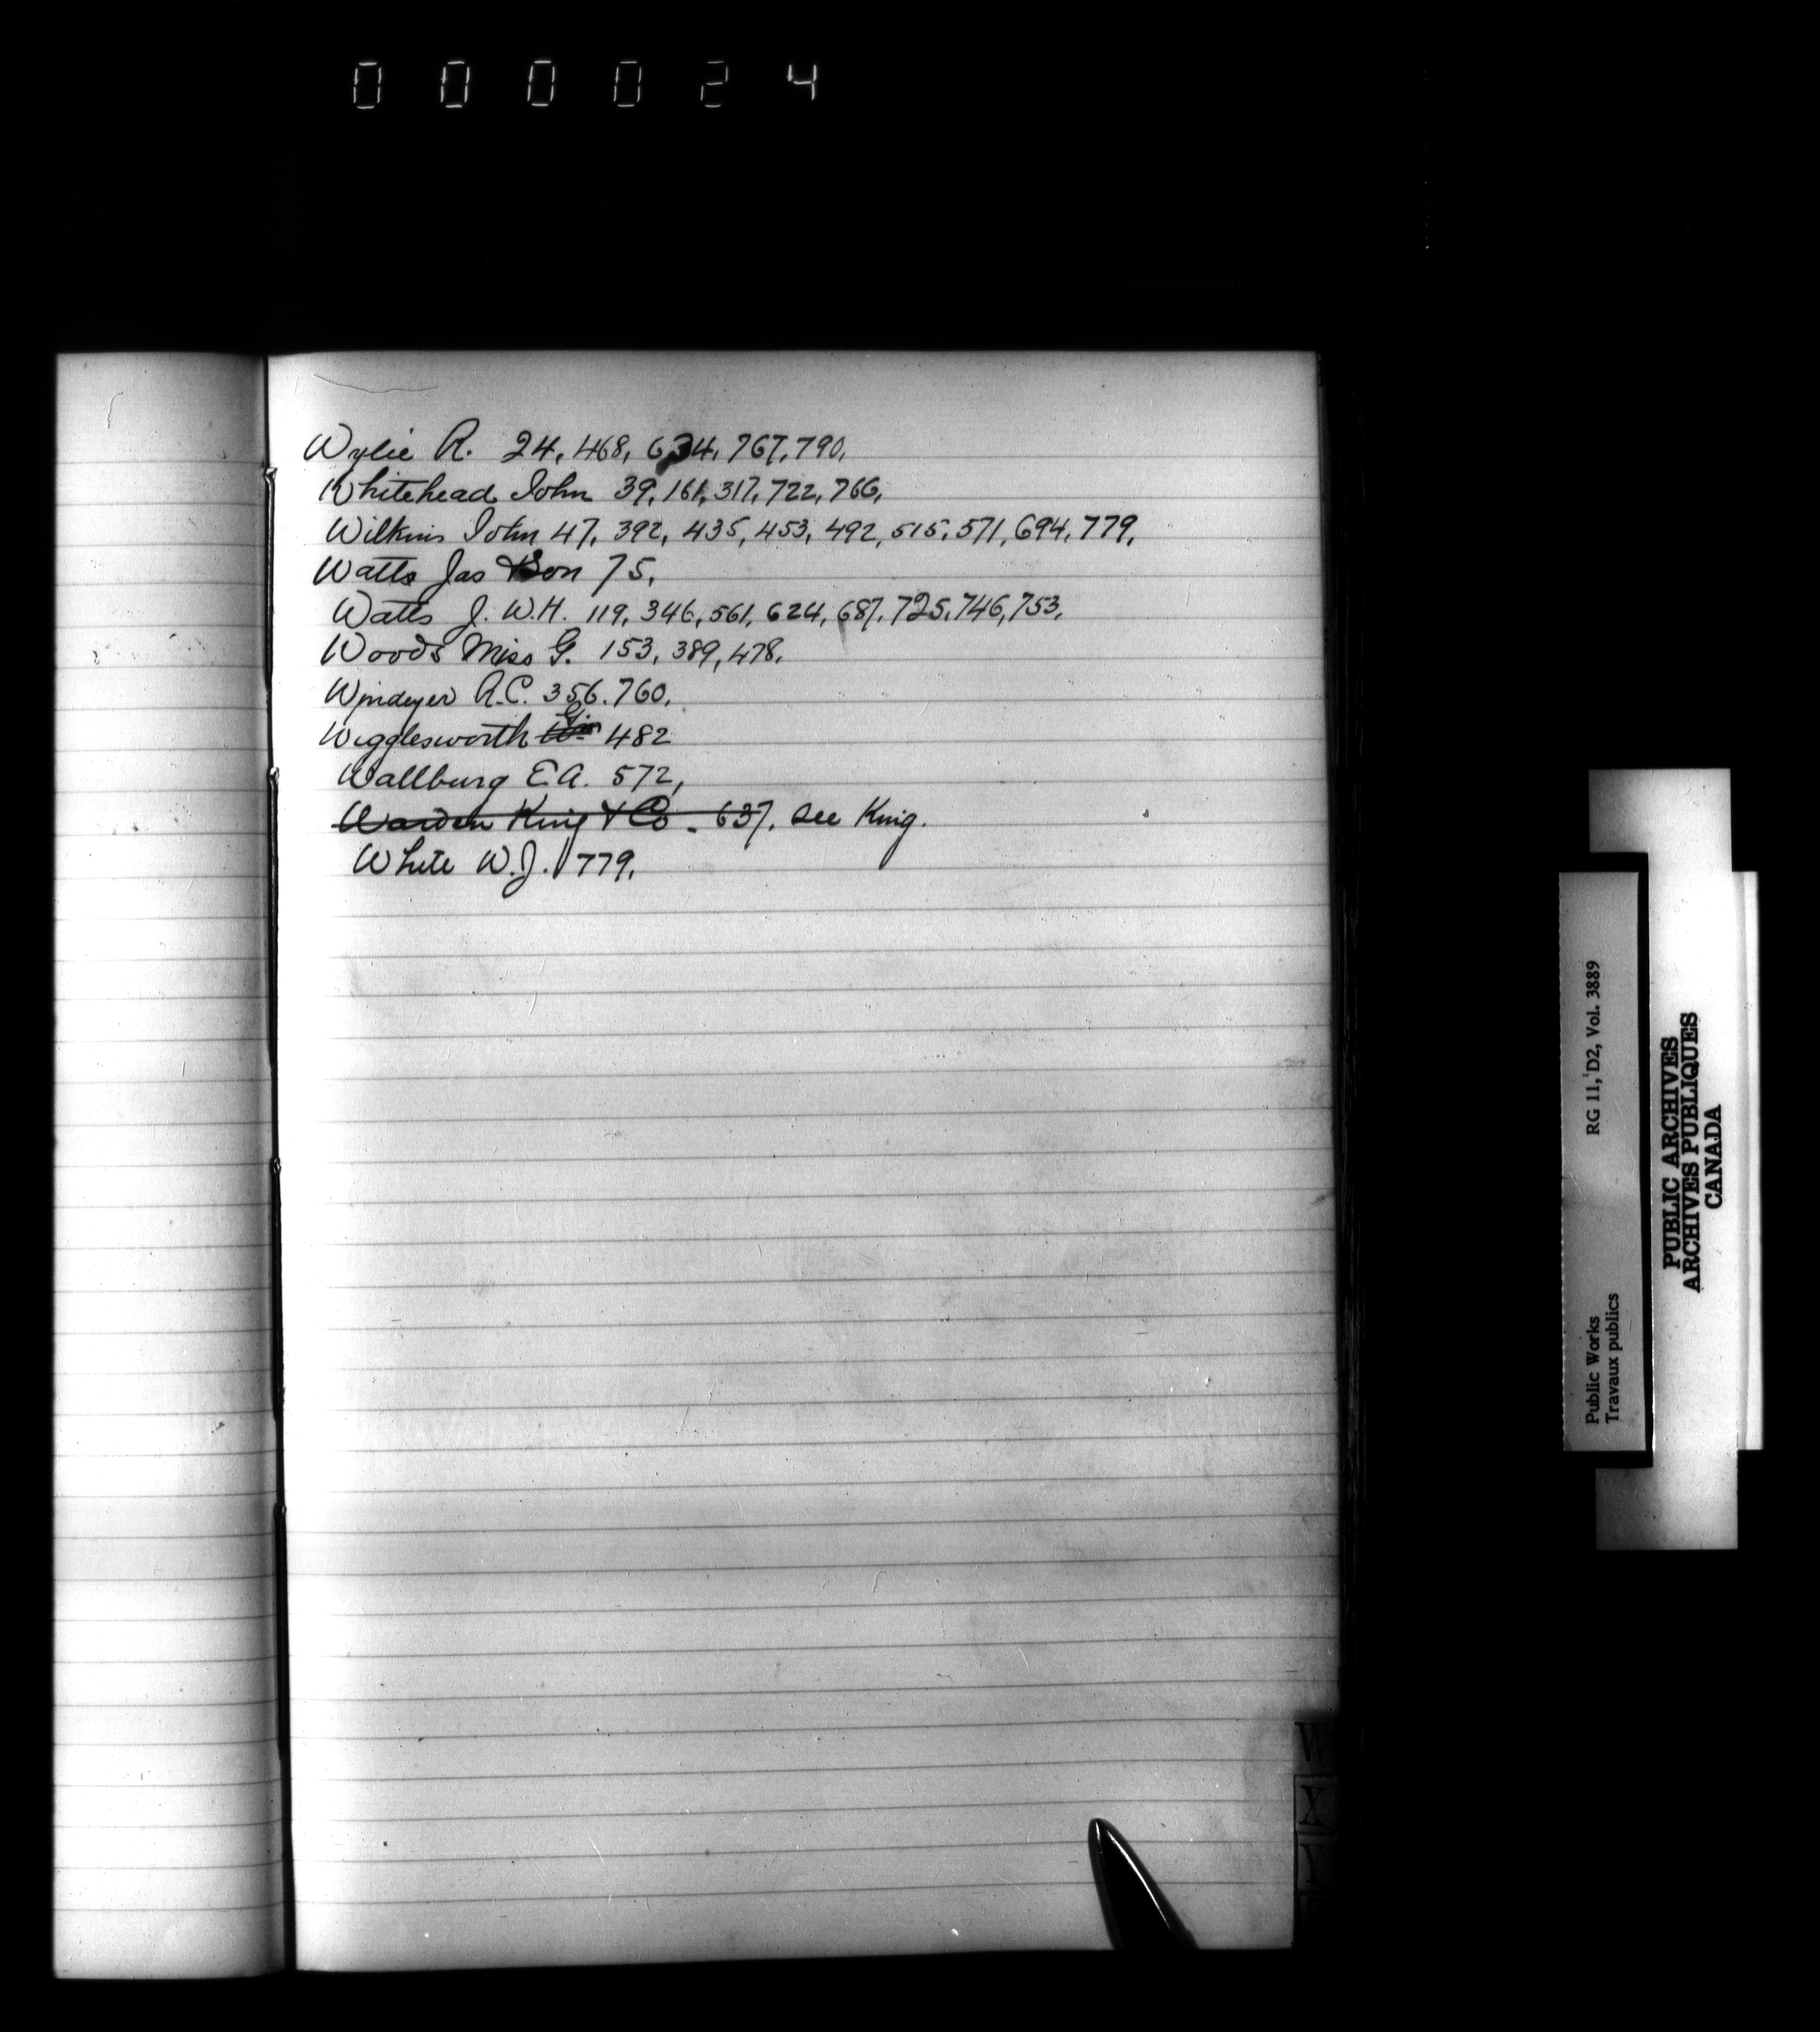 000024
Wylie R. 24, 468, 634, 767, 790,
Whitehead John 39, 161, 317, 722, 766,
Wilkins John 47, 392, 435, 453, 492, 515, 571, 694, 779,
Watts Jas & Son 75,
Watts J. W. H. 119, 346, 561, 624, 687, 725, 746, 753,
Woods Miss G. 153, 389, 478,
Windeyer R.C. 356. 760,
Wigglesworth G. 482
Wallburg E A. 572,
Warden King & Co - 637, see King.
White W. J. 779,
W
X
RG 11, D2, Vol. 3889
Public Works
Travaux publics
PUBLIC ARCHIVES
ARCHIVES PUBLIQUES
CANADA